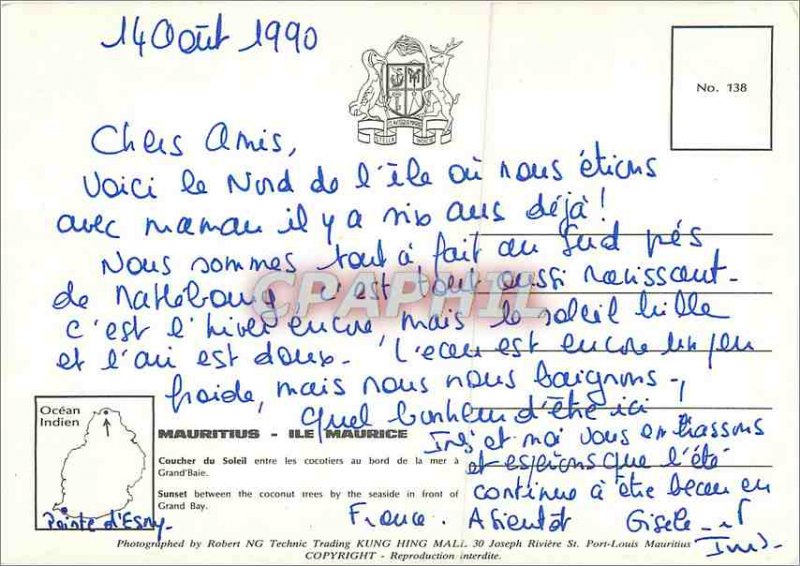 14 Août 1990
No. 138
Chers Amis,
Voici le Nord de l'île où nous étions
avec maman il y a six ans déjà!
Nous sommes tout à fait au Sud près
de Mahébourg, c'est tout aussi ravissant-
CPAPHIL
c'est l'hiver encore, mais le soleil brille
et l'air est doux- L'eau est encore un peu
froide, mais nous nous baignons-,
Quel bonheur d'être ici
Océan
Indien
MAURITIUS - ILE MAURICE
Coucher du Soleil entre les cocotiers au bord de la mer à
Grand'Baie.
Sunset between the coconut trees by the seaside in front of
Grand Bay.
et moi vous embrassons
et espérons que l'été
continue à être beau en
France. A bientôt Gisèle
Pointe d'Esny-
Photographed by Robert NG Technic Trading KUNG HING MALL 30 Joseph Rivière St. Port-Louis Mauritius
COPYRIGHT - Reproduction interdite.